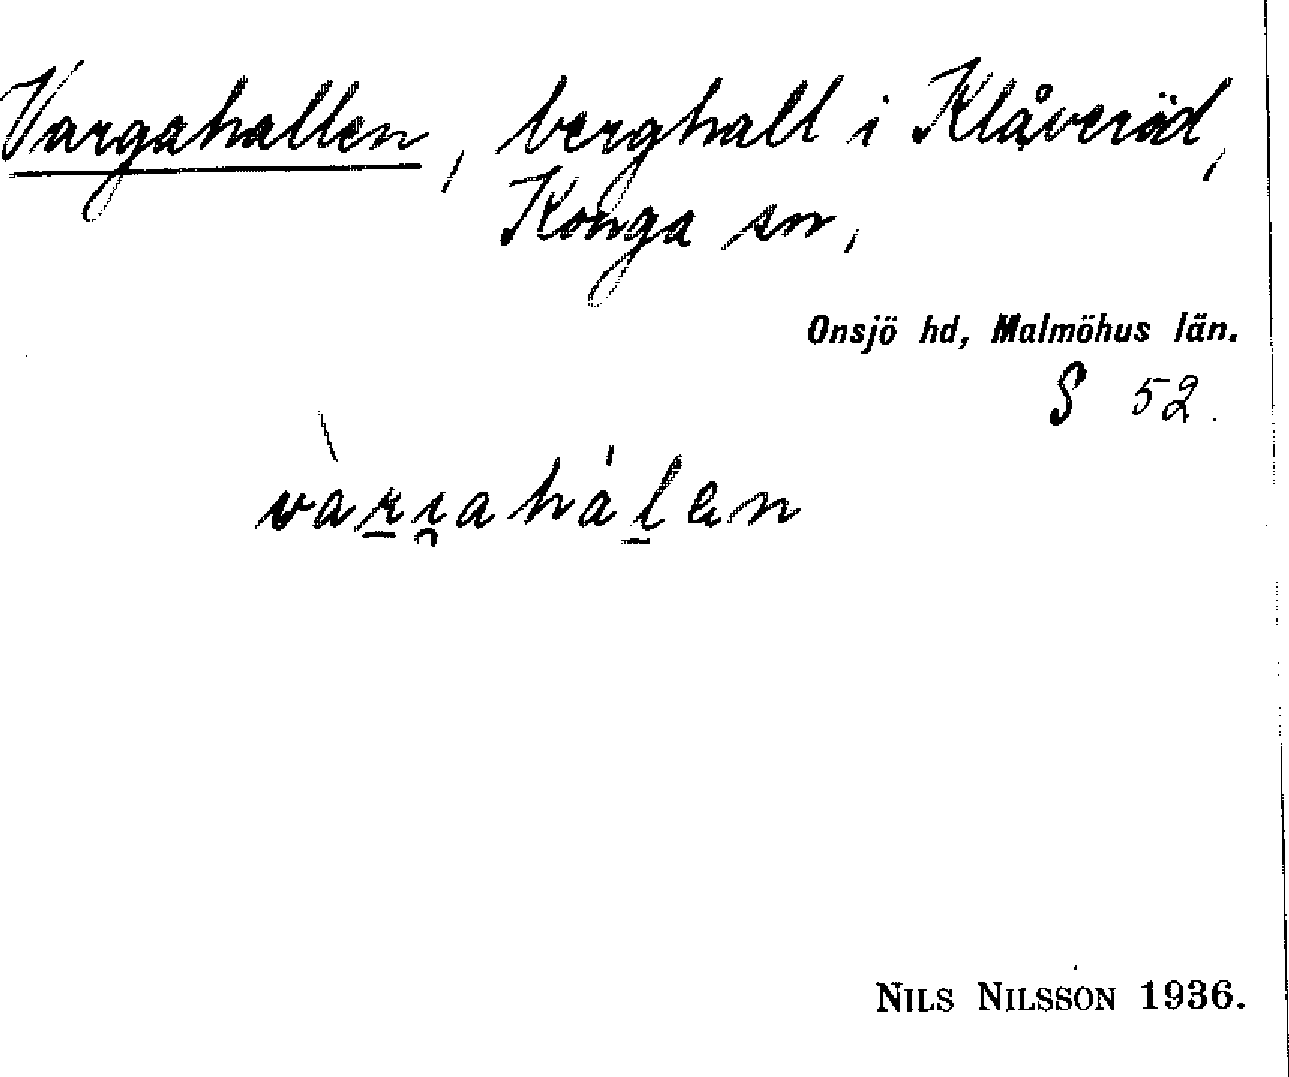 Vargahallen, berghall i Klåveröd,
Konga sn,
Onsjö hd, Malmöhus län.
S 52.
NILS NILSSON 1936.